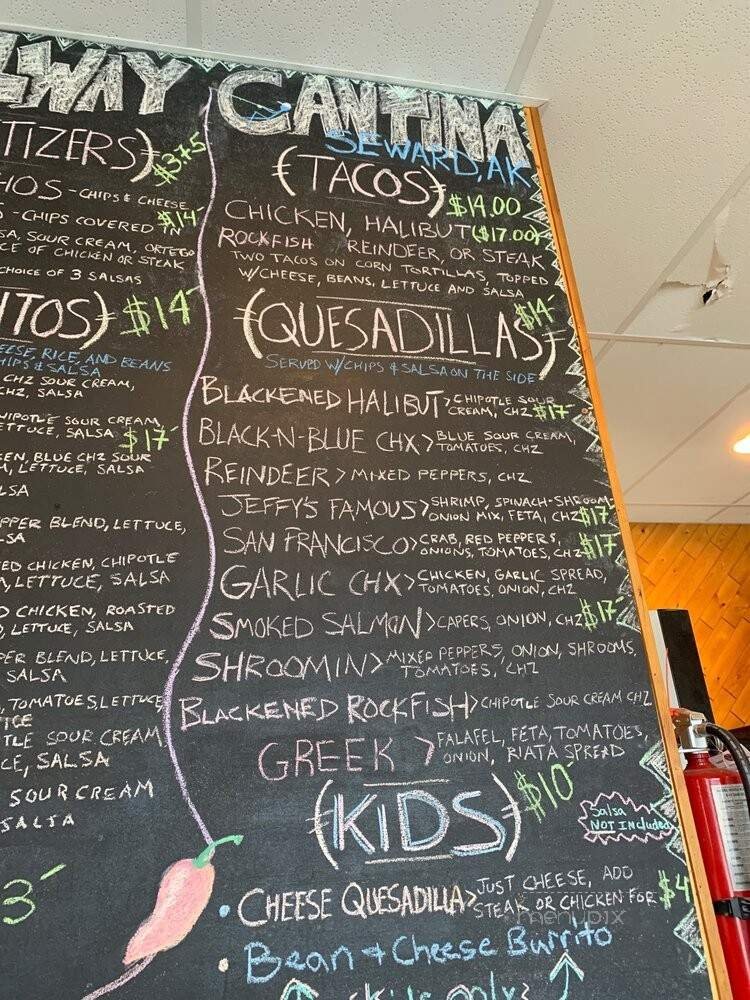 LWAY CANTINA
SEWARD, AK
TIZERS) $3.75
HOS - CHIPS & CHEESE
- CHIPS COVERED $14
SA, SOUR CREAM, ORTEGO
CE OF CHICKEN OR STEAK
CHOICE OF 3 SALSAS
ITOS) $14
EESE, RICE, AND BEANS
HIPS & SALSA
CHZ SOUR CREAM,
CHZ, SALSA
HIPOTLE SOUR CREAM,
ETTUCE, SALSA $17
EN, BLUE CHZ SOUR
M, LETTUCE, SALSA
LSA
PPER BLEND, LETTUCE,
LSA
ED CHICKEN, CHIPOTLE
M, LETTUCE, SALSA
D CHICKEN, ROASTED
LETTUCE, SALSA
PER BLEND, LETTUCE,
SALSA
, TOMATOES, LETTUCE
TLE SOUR CREAM,
CE, SALSA
SOUR CREAM
SALSA
3
(TACOS) $14.00
CHICKEN, HALIBUT ($17.00)
ROCKFISH REINDEER, OR STEAK
TWO TACOS ON CORN TORTILLAS, TOPPED
W/CHEESE, BEANS, LETTUCE AND SALSA
(QUESADILLAS) $14
SERVED W/CHIPS & SALSA ON THE SIDE
BLACKENED HALIBUT > CHIPOTLE SOUR
CREAM, CHZ $17
BLACK-N-BLUE CHX > BLUE SOUR CREAM,
TOMATOES, CHZ
REINDEER > MIXED PEPPERS, CHZ
JEFFY'S FAMOUS > SHRIMP, SPINACH-SHROOM-
ONION MIX, FETA, CHZ $17
SAN FRANCISCO > CRAB, RED PEPPERS,
ONIONS, TOMATOES, CHZ $17
GARLIC CHX > CHICKEN, GARLIC SPREAD,
TOMATOES, ONION, CHZ
SMOKED SALMON > CAPERS, ONION, CHZ $17
SHROOMIN > MIXED PEPPERS, ONION, SHROOMS,
TOMATOES, CHZ
BLACKENED ROCKFISH > CHIPOTLE SOUR CREAM CHZ
GREEK > FALAFEL, FETA, TOMATOES,
ONION, RIATA SPREAD
(KIDS) $10
Salsa
NOT Included
• CHEESE QUESADILLA > JUST CHEESE, ADD
STEAK OR CHICKEN FOR $4
• Bean & Cheese Burrito
(Kids only)
menupix